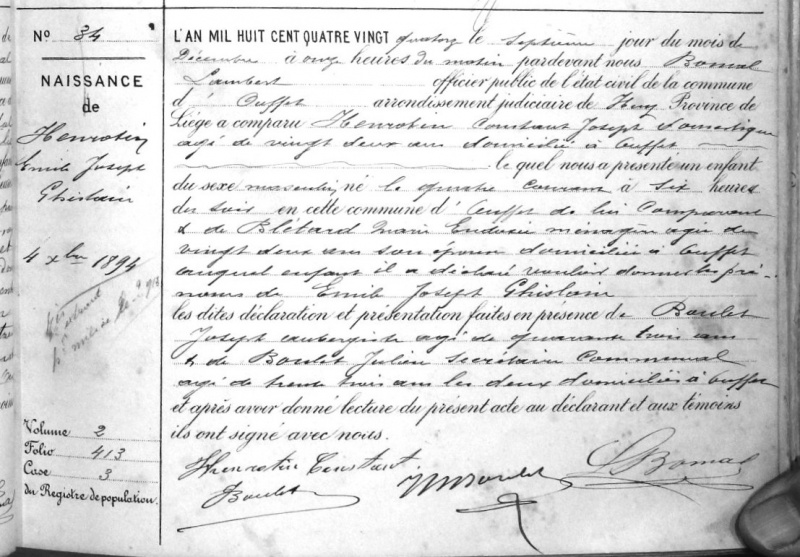 No 84
NAISSANCE
de
Henrotin
Emile Joseph
Ghislain
4 xbre 1894
Volume 2
Folio 413
Case 3
du Registre de population.
L'AN MIL HUIT CENT QUATRE VINGT quatorze le septième jour du mois de
Décembre à onze heures du matin pardevant nous Bomal
Lambert officier public de l'état civil de la commune
d' Ouffet arrondissement judiciaire de Huy Province de
Liége a comparu Henrotin Constant Joseph domestique
agé de vingt deux ans domicilié à Ouffet
le quel nous a présenté un enfant
du sexe masculin, né le quatre courant à six heures
du soir en cette commune d'Ouffet de lui Comparant
& de Blétard Marie ménagère agée de
vingt deux ans son épouse domiciliée à Ouffet
auquel enfant il a déclaré vouloir donner les pré-
noms de Emile Joseph Ghislain
les dites déclaration et présentation faites en presence de Boulet
Joseph aubergiste agé de quarante trois ans
& de Boulet Julien Secrétaire Communal
agé de trente trois ans les deux domiciliés à Ouffet
et après avoir donné lecture du présent acte au déclarant et aux témoins
ils ont signé avec nous.
Henrotin Constant
Boulet
Boulet
L Bomal